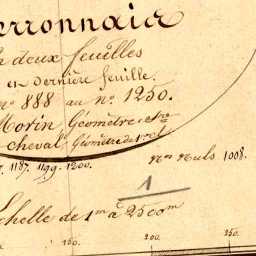 erronnais
n deux feuilles
et dernière feuille.
n° 888 au n° 1250.
Morin Géomètre
cheval Géomètre de 1re cl
1187. 1199. 1200.
Nos Nuls 1008.
1
Echelle de 1m à 2500m
150. 200. 250.